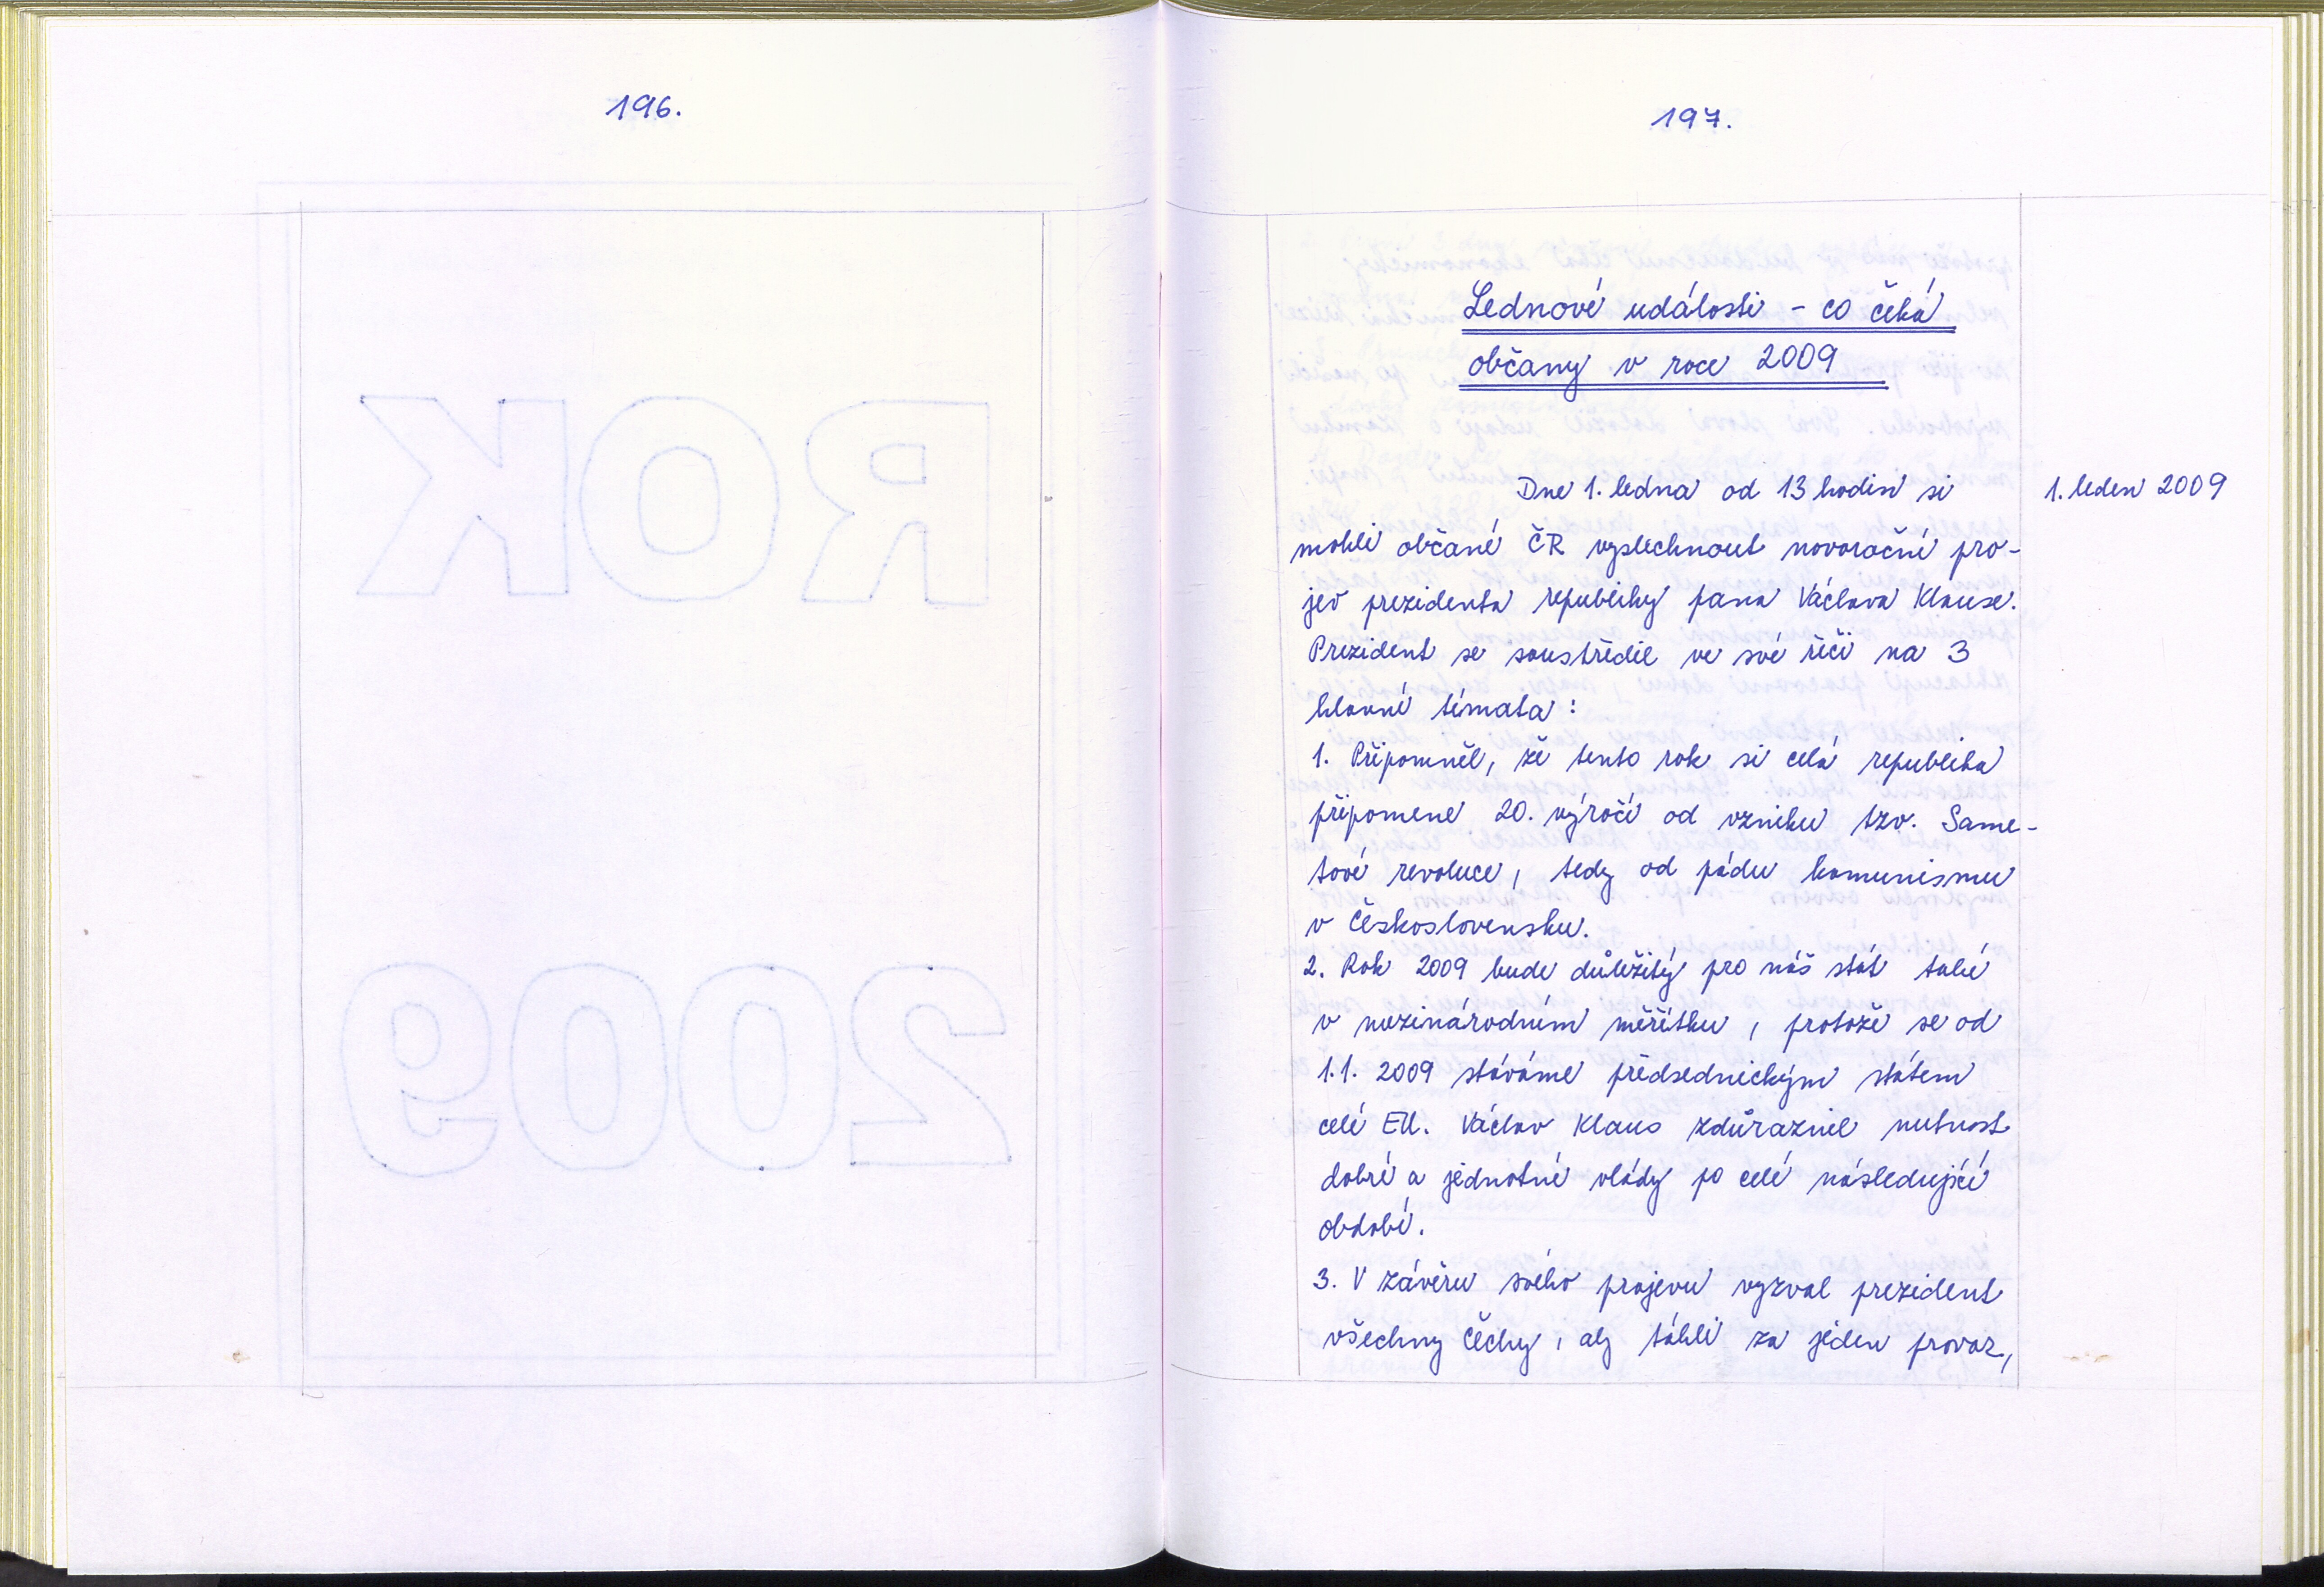 196.
197.
Lednové události - co čeká
občany v roce 2009
Dne 1. ledna od 13 hodin si
1. leden 2009
mohli občané ČR vyslechnout novoroční pro-
jev prezidenta republiky pana Václava Klause.
Prezident se soustředil ve své řeči na 3
hlavní témata :
1. Připomněl, že tento rok si celá republika
připomene 20. výročí od vzniku tzv. Same-
tové revoluce, tedy od pádu komunismu
v Československu.
2. Rok 2009 bude důležitý pro náš stát také
v mezinárodním měřítku, protože se od
1.1. 2009 stáváme předsednickým státem
celé EU. Václav Klaus zdůraznil nutnost
dobré a jednotné vlády po celé následující
období.
3. V závěru svého projevu vyzval prezident
všechny Čechy, aby táhli za jeden provaz,